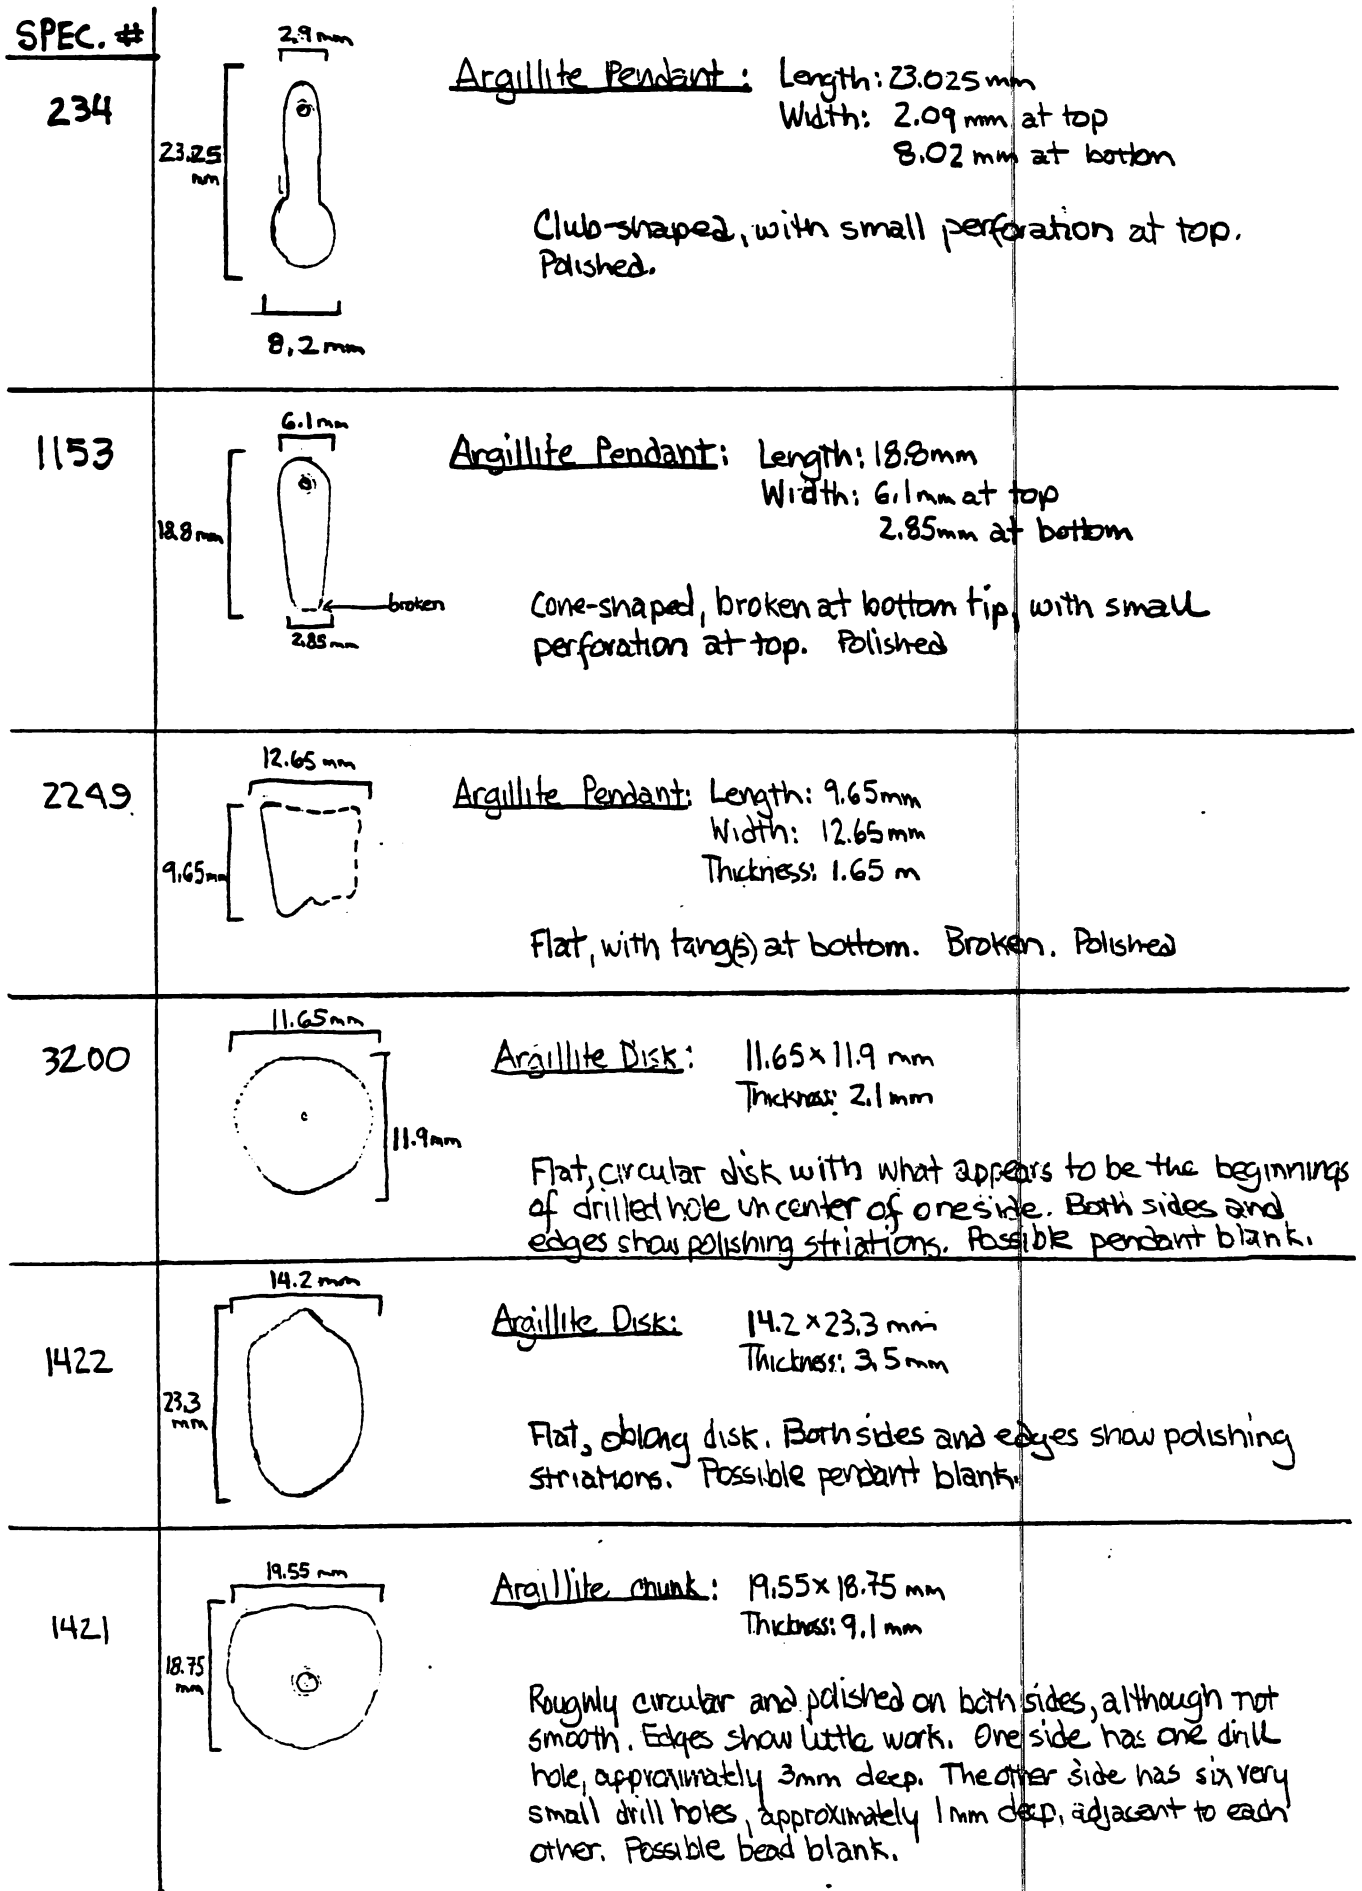 SPEC. #
234
2.9 mm
23.25
mm
8.2 mm
Argillite Pendant: Length: 23.025 mm
Width: 2.09 mm at top
8.02 mm at bottom
Club-shaped, with small perforation at top.
Polished.
1153
6.1 mm
18.8 mm
broken
2.85 mm
Argillite Pendant: Length: 18.8 mm
Width: 6.1 mm at top
2.85 mm at bottom
Cone-shaped, broken at bottom tip, with small
perforation at top. Polished
2249
12.65 mm
9.65 mm
Argillite Pendant: Length: 9.65 mm
Width: 12.65 mm
Thickness: 1.65 m
Flat, with tang(s) at bottom. Broken. Polished
3200
11.65 mm
11.9 mm
Argillite Disk: 11.65 x 11.9 mm
Thickness: 2.1 mm
Flat, circular disk with what appears to be the beginnings
of drilled hole in center of one side. Both sides and
edges show polishing striations. Possible pendant blank.
1422
14.2 mm
23.3
mm
Argillite Disk: 14.2 x 23.3 mm
Thickness: 3.5 mm
Flat, oblong disk. Both sides and edges show polishing
striations. Possible pendant blank.
1421
19.55 mm
18.75
mm
Argillite chunk: 19.55 x 18.75 mm
Thickness: 9.1 mm
Roughly circular and polished on both sides, although not
smooth. Edges show little work. One side has one drill
hole, approximately 3mm deep. The other side has six very
small drill holes, approximately 1 mm deep, adjacent to each
other. Possible bead blank.